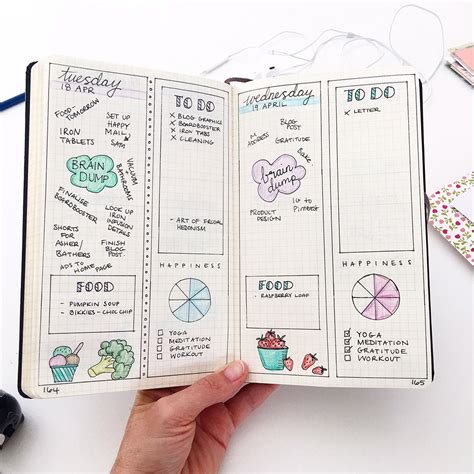 tuesday
18 APR
FOOD TOMORROW
SET UP
HAPPY
MAIL
SATN
IRON
TABLETS
BRAIN
DUMP
VACUUM
+
BATHROOMS
FINALISE
BOARDBOOSTER
LOOK UP
IRON
INFUSION
DETAILS
SHORTS
FOR
ASHER/
BATHERS
FINISH
BLOG
POST
ADS TO HOMEPAGE
FOOD
- PUMPKIN SOUP
- BIKKIES - CHOC CHIP
164
TO DO
X BLOG GRAPHICS
X BOARDBOOSTER
X IRON TABS
X CLEANING
- ART OF FRUGAL
HEDONISM
HAPPINESS
YOGA
MEDITATION
GRATITUDE
WORKOUT
wednesday
19 APRIL
ADDRESS
BLOG
POST
GRATITUDE
Bake
brain
dump
PRODUCT
DESIGN
IG to
Pinterest
FOOD
- RASPBERRY LOAF
TO DO
X LETTER
HAPPINESS
YOGA
MEDITATION
GRATITUDE
WORKOUT
165